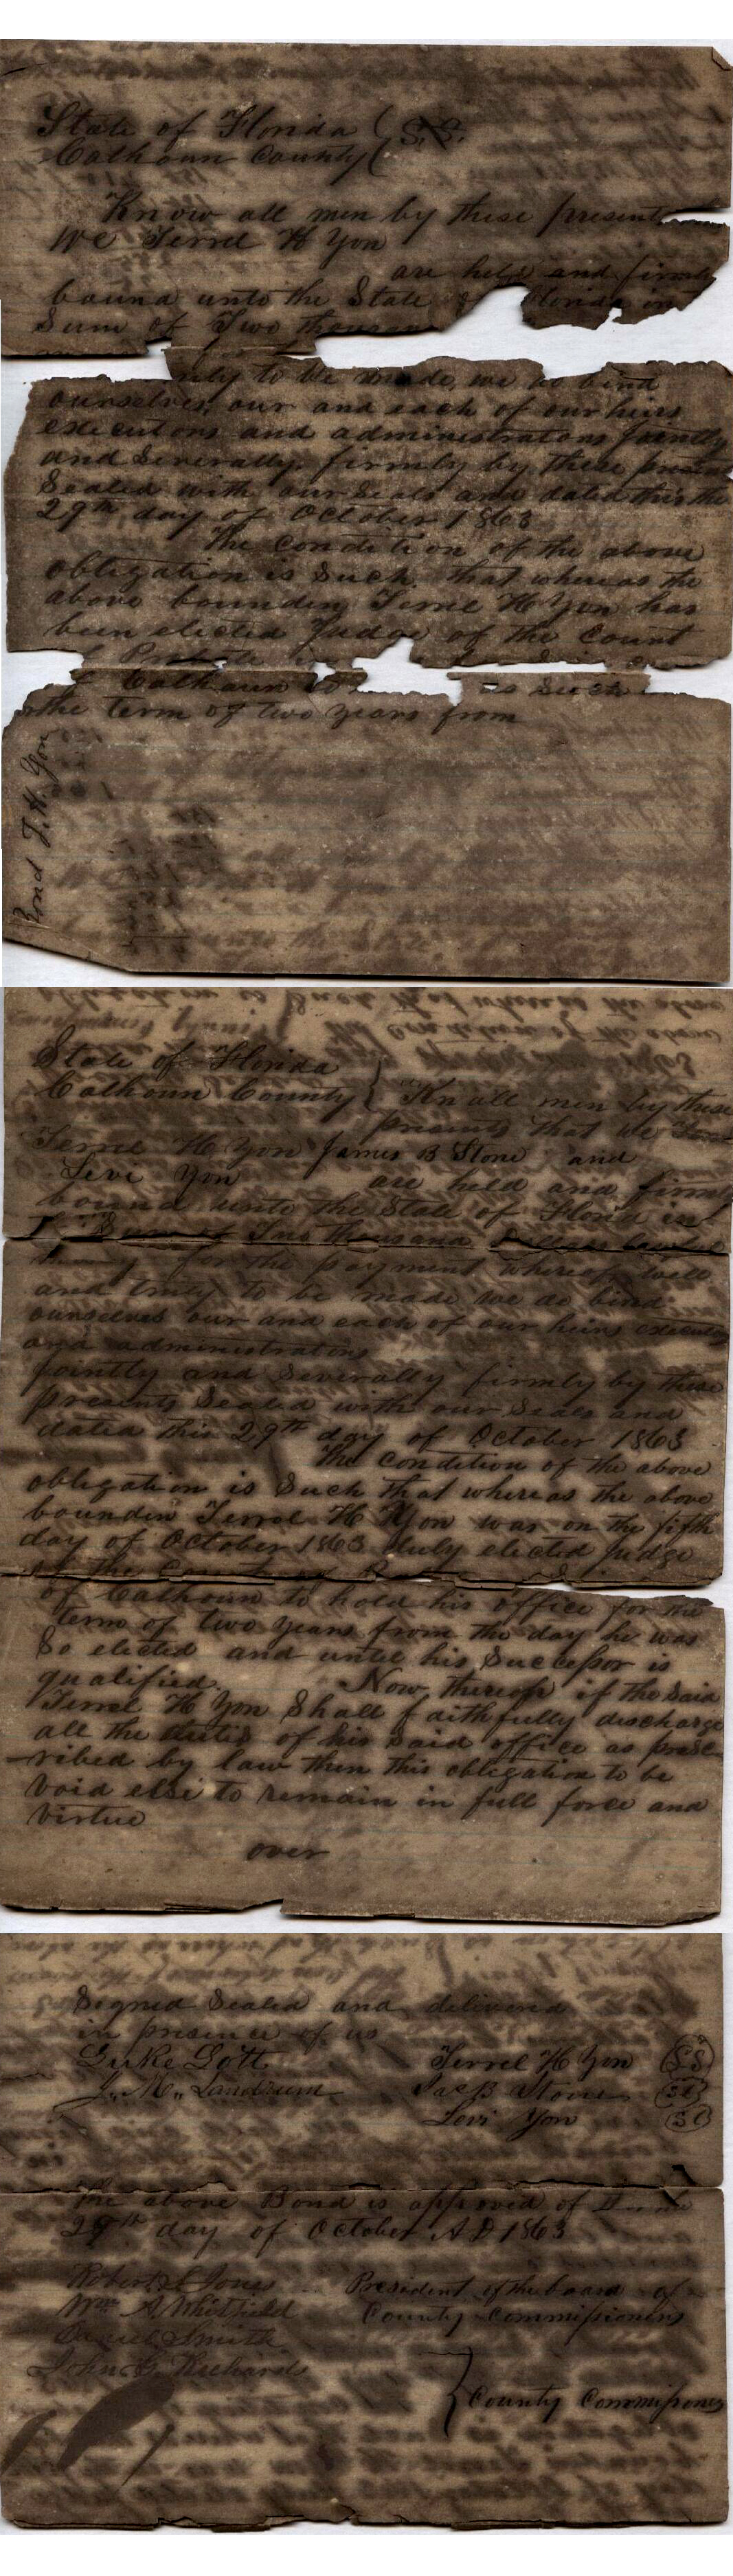 State of Florida
Calhoun County S.S.
Know all men by these present
We Terrel H Yon
are held and firmly
bound unto the State of Florida in
Sum of Two thousan
nly to be made, we do bind
ourselves, our and each of our heirs
executors and administrators jointly
and Severally, firmly by these
Sealed with our Seals and dated this the
29th day of October 1863
The condition of the above
obligation is Such, that whereas the
above bounden Terrel H Yon has
been elected Judge of the Court
Calhoun as such
the term of two years from
Bond T. H. Yon
State of Florida
Calhoun County Kn all men by these
presents that we
Terrel H Yon James B Stone and
Levi Yon are held and firmly
bound unto the State of Florid in
Sum of Two thousand Dollars
for the payment whereof well
and truly to be made we do bind
ourselves our and each of our heirs executors
and administrators
jointly and Severally firmly by these
presents Sealed with our Seals and
dated this 29th day of October 1863
The Condition of the above
obligation is Such that whereas the above
bounden Terrel H Yon was on the fifth
day of October 1863 duly elected judge
of the
of Calhoun to hold his office for the
term of two years from the day he was
So elected and until his Successor is
qualified. Now therefor if the said
Terrel H Yon Shall faithfully discharge
all the duties of his said office as presc
ribed by law then this obligation to be
void else to remain in full force and
virtue
over
Signed Sealed and delivered
in presence of us
Luke Lott Terrel H Yon
J. M. Landrum Jas B Stone
Levi Yon
The above Bond is approved of
29th day of October A D 1863
Robert Jones President of the board of
Wm A Whitfield County Commissioners
Smith
John G. Richards
County Commissioners